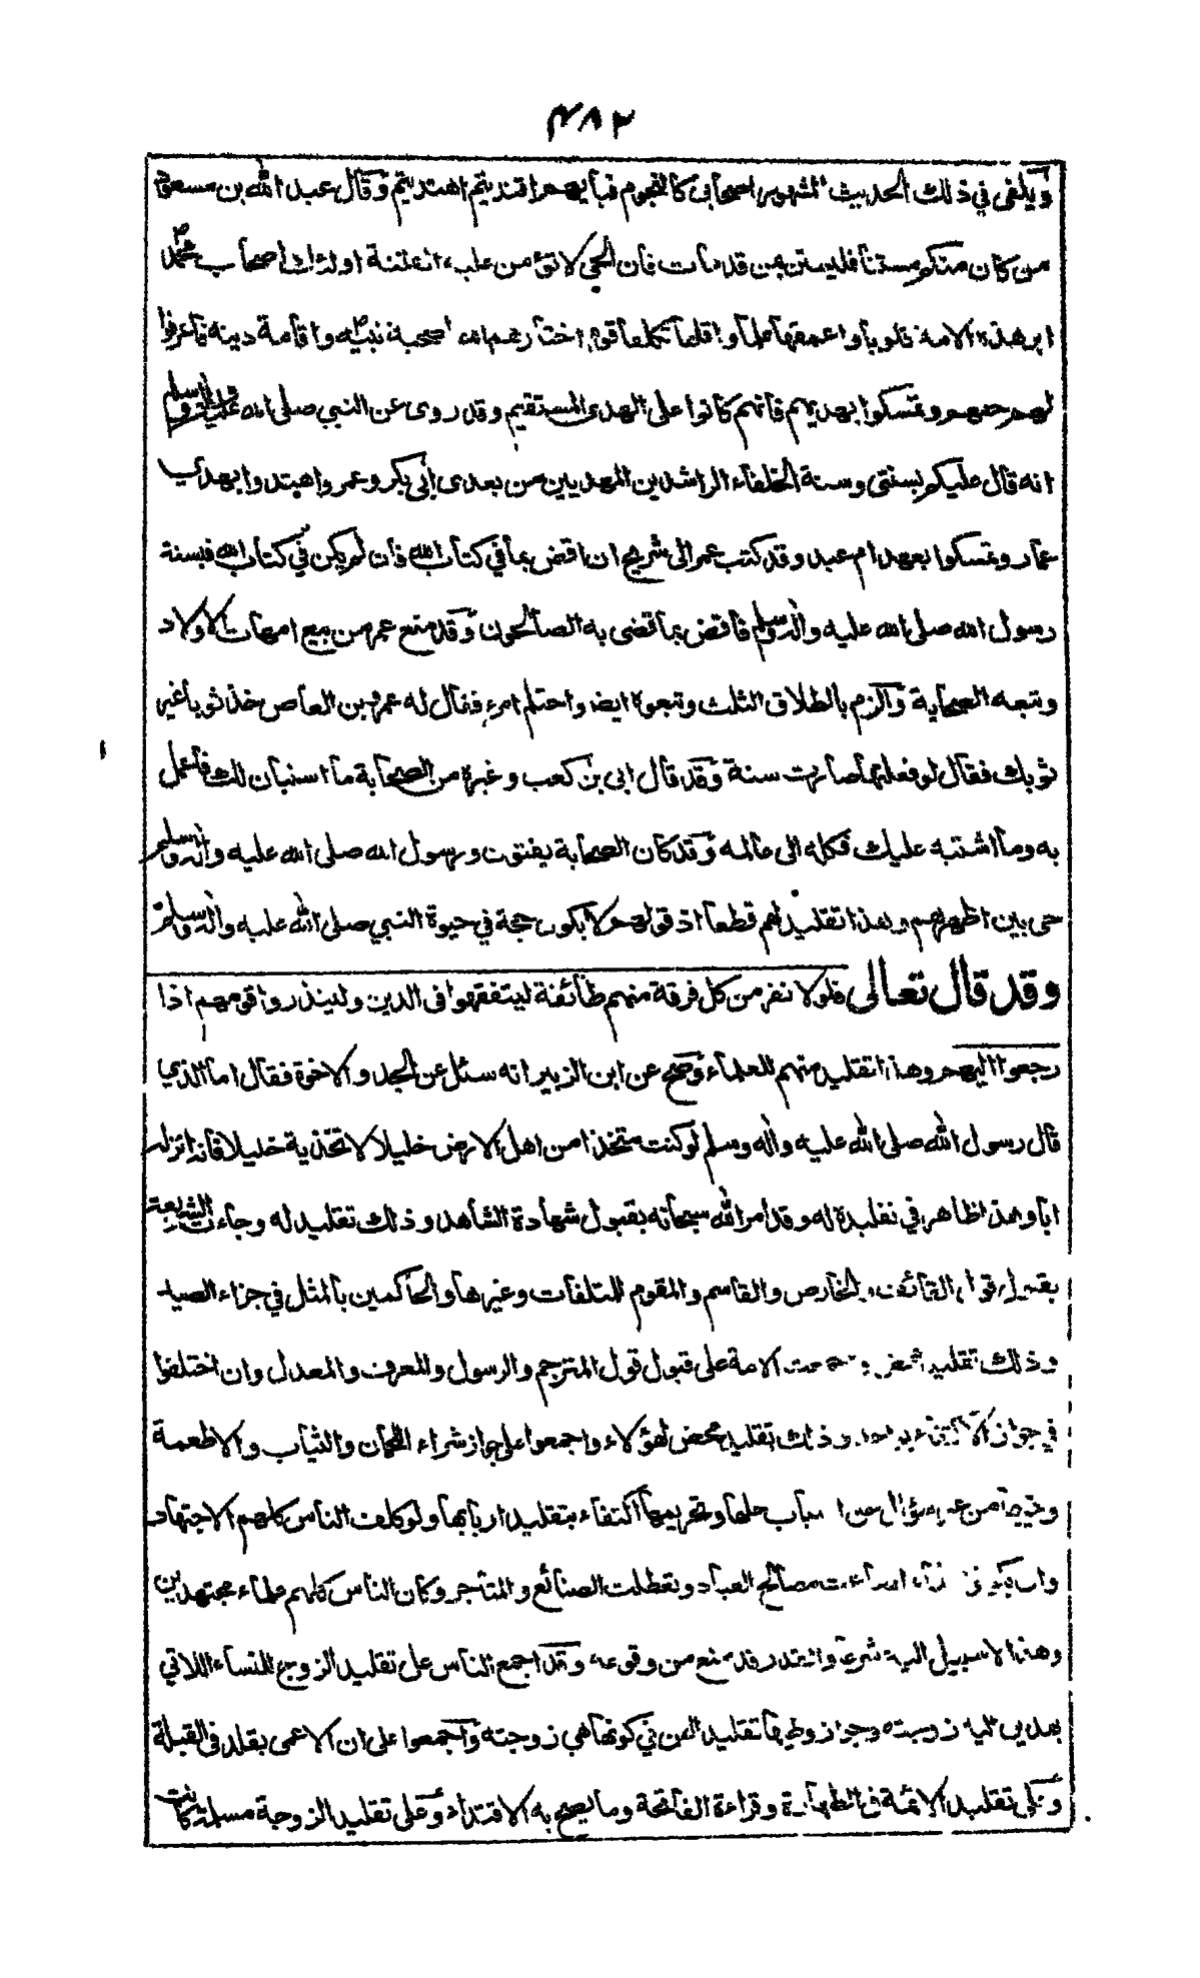 ٤٨٢
ويكفى في ذلك الحديث المشهور اصحابى كالنجوم فبايهم اقتديتم اهتديتم وقال عبد الله بن مسعود
من كان منكم مستنا فليستن بمن قد مات فان الحي لا تؤمن عليه الفتنة اولئك اصحاب محمد
ابر هذه الامة قلوبا واعمقها علما واقلها تكلفا قوم اختارهم الله لصحبة نبيه واقامة دينه فاعرفوا
لهم حقهم وتمسكوا بهديهم فانهم كانوا على الهدى المستقيم وقد روى عن النبي صلى الله عليه واله وسلم
انه قال عليكم بسنتي وسنة الخلفاء الراشدين المهديين من بعدى ابى بكر وعمر واهتدوا بهدي
عمار وتمسكوا بعهد ام عبد وقد كتب عمر الى شريح ان اقض بما في كتاب الله فان لم يكن في كتاب الله فبسنة
رسول الله صلى الله عليه واله وسلم فاقض بما قضى به الصالحون وقد منع عمر من بيع امهات الاولاد
وتبعه الصحابة والزم بالطلاق الثلث وتبعوه ايضا واحتلم امرء فقال له عمرو بن العاص خذ ثوبا غير
ثوبك فقال لو فعلتها صارت سنة وقد قال ابى بن كعب وغيره من الصحابة ما استبان لك فاعمل
به وما اشتبه عليك فكله الى عالمه وقد كان الصحابة يفتون ورسول الله صلى الله عليه واله وسلم
حى بين اظهرهم وهذا تقليد لهم قطعا اذ قولهم لا يكون حجة في حيوة النبي صلى الله عليه واله وسلم
وقد قال تعالى فلولا نفر من كل فرقة منهم طائفة ليتفقهوا فى الدين ولينذروا قومهم اذا
رجعوا اليهم وهذا تقليد منهم للعلماء وصح عن ابن الزبير انه سئل عن الجد والاخوة فقال اما الذي
قال رسول الله صلى الله عليه واله وسلم لو كنت متخذا من اهل الارض خليلا لاتخذته خليلا فانه انزله
ابا وهذا ظاهر في تقليده له وقد امر الله سبحانه بقبول شهادة الشاهد وذلك تقليد له وجاءت الشريعة
بقبول قول القائف والخارص والقاسم والمقوم للمتلفات وغيرها والحاكمين بالمثل في جزاء الصيد
وذلك تقليد محض واجمعت الامة على قبول قول المترجم والرسول والمعرف والمعدل وان اختلفوا
في جواز الاكتفاء بواحد وذلك تقليد محض لهؤلاء واجمعوا على جواز شراء اللحمان والثياب والاطعمة
وغيرها من غير سؤال عن اسباب حلها وتحريمها اكتفاء بتقليد اربابها ولو كلف الناس كلهم الاجتهاد
وان يكونوا مصالح العباد وتعطلت الصنائع والمتاجر وكان الناس كلهم علماء مجتهدين
وهذا لا سبيل اليه شرعا والقدر قد منع من وقوعه وقد اجمع الناس على تقليد الزوج للنساء اللاتي
يهدين اليه زوجته وجواز وطيها تقليدا لهن في كونها هي زوجته واجمعوا على ان الاعمى يقلد فى القبلة
وعلى تقليد الائمة فى الطهارة وقراءة الفاتحة وما يصح به الاقتداء وعلى تقليد الزوجة مسلمة كانت